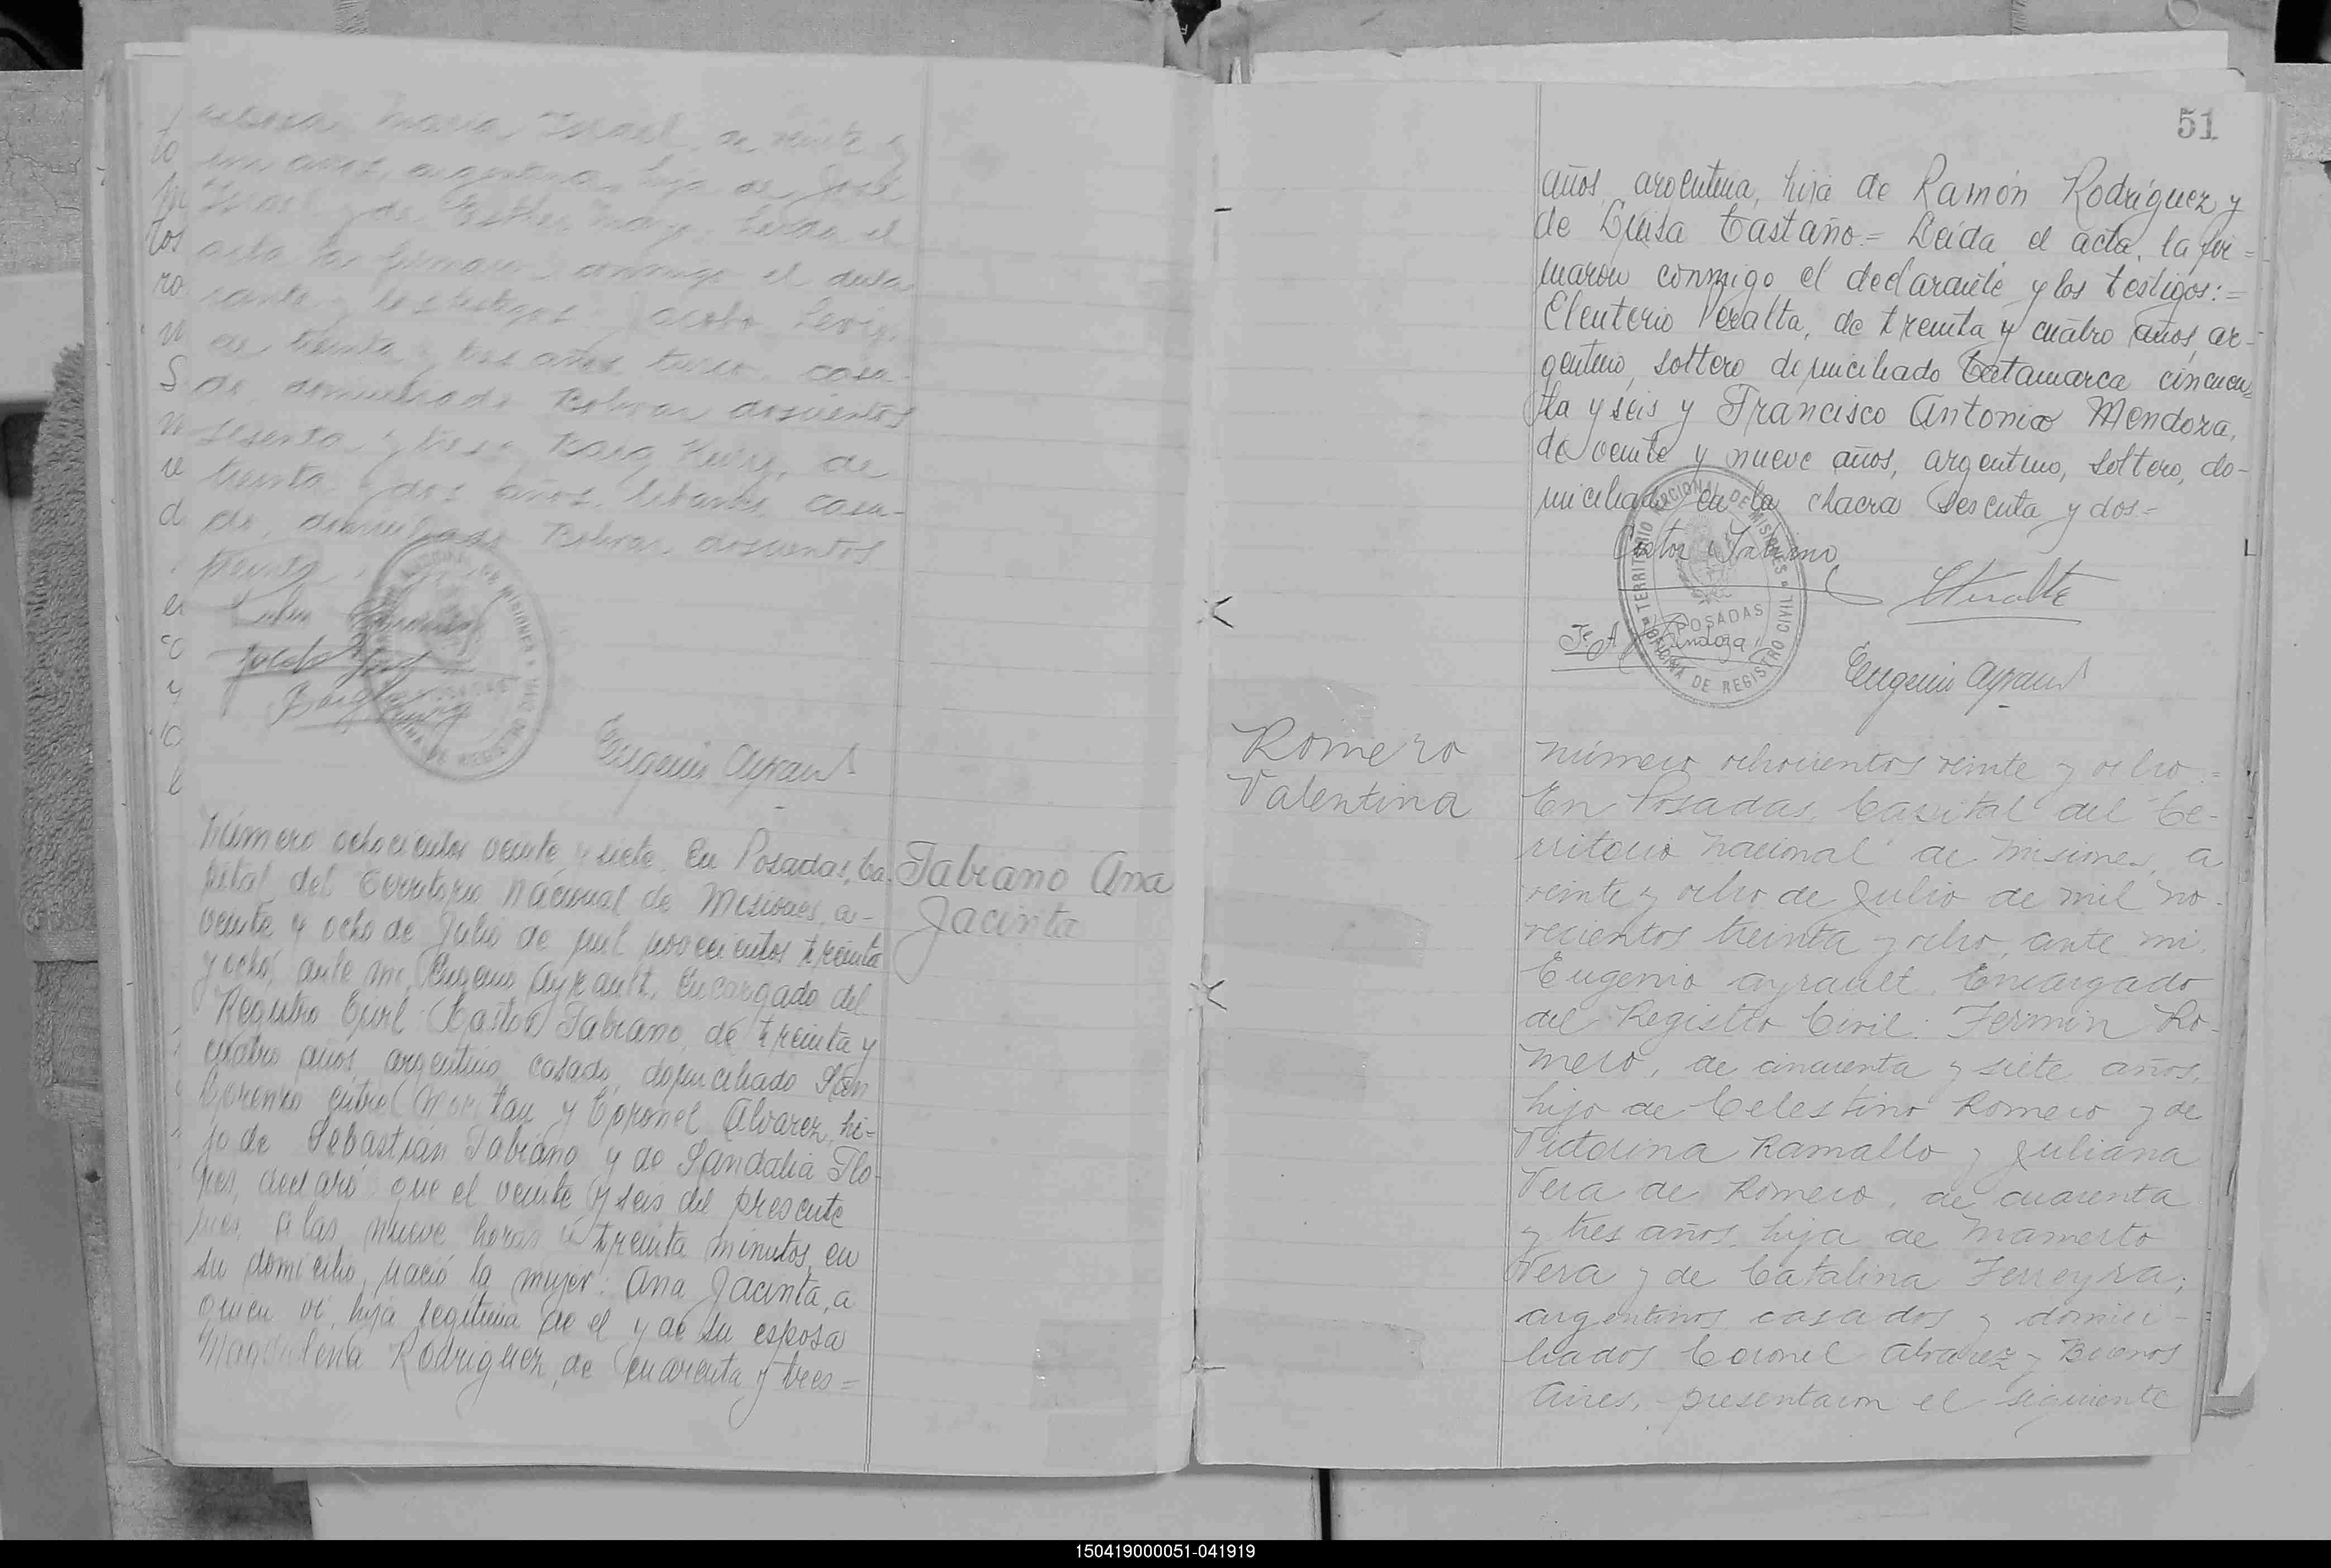 esposa María Israel, de veinte y
un años, argentina, hija de José
Israel y de Esther Mary. Leída el
acta la firmaron conmigo el decla-
rante y los testigos: Jacobo Levy,
de treinta y tres años, turco, casa-
do, domiciliado Bolívar doscientos
sesenta y tres y de
treinta y dos años, libanés, casa-
do, domiciliado Bolívar doscientos
treinta
Eugenio Ayrault
Número ochocientos veinte y siete. En Posadas, Ca-
pital del Territorio Nacional de Misiones, a-
veinte y ocho de Julio de mil novecientos treinta
y ocho, ante mi, Eugenio Ayrault, Encargado del
Registro Civil: Castor Fabiano, de treinta y
cuatro años, argentino, casado, domiciliado San
Lorenzo entre y Coronel Alvarez, hi-
jo de Sebastián Fabiano y de Sandalia Flo-
res, declaró: que el veinte y seis del presente
mes, a las nueve horas y treinta minutos, en
su domicilio, nació la mujer: Ana Jacinta, a
quien ví, hija legítima de el y de su esposa
Magdalena Rodriguez, de cuarenta y tres=
Fabiano Ana
Jacinta
51
años, argentina, hija de Ramón Rodríguez y
de Luisa Castaño.= Leída el acta, la fir=
maron conmigo el declarante y los testigos:=
Eleuterio Peralta, de treinta y cuatro años, ar-
gentino, soltero domiciliado Catamarca cincuen=
ta y seis y Francisco Antonio Mendoza,
de veinte y nueve años, argentino, soltero, do-
miciliado en la chacra sesenta y dos=
Castor Fabiano
EPeralta
F. A. Mendoza
Eugenio Ayrault
TERRITORIO NACIONAL DE MISIONES
POSADAS
OFICINA DE REGISTRO CIVIL
Romero
Valentina
Número ochocientos veinte y ocho.=
En Posadas, Capital del Te-
rritorio Nacional de Misiones, a
veinte y ocho de Julio de mil no-
vecientos treinta y ocho, ante mi,
Eugenio Ayrault, Encargado
del Registro Civil: Fermin Ro-
mero, de cincuenta y siete años,
hijo de Celestino Romero y de
Victorina Ramallo y Juliana
Vera de Romero, de cuarenta
y tres años, hija de Mamerto
Vera y de Catalina Ferreyra;
argentinos, casados y domici-
liados Coronel Alvarez y Buenos
Aires, presentaron el siguiente
150419000051-041919